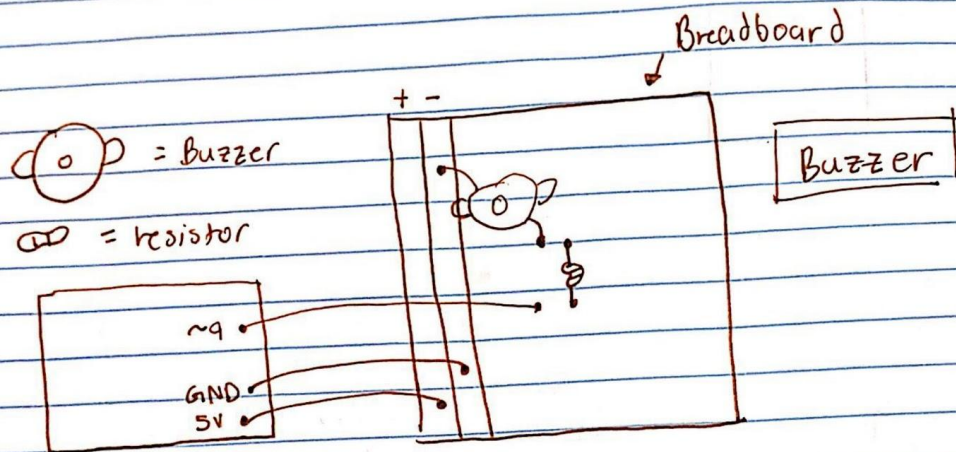 Breadboard
+ -
= Buzzer
Buzzer
= resistor
~9
GND
5V